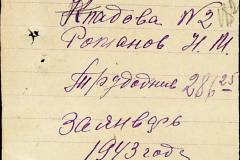 Кладова №2
Рожанов Н. М.
Трудодние 286 25
За январь
1943 годе